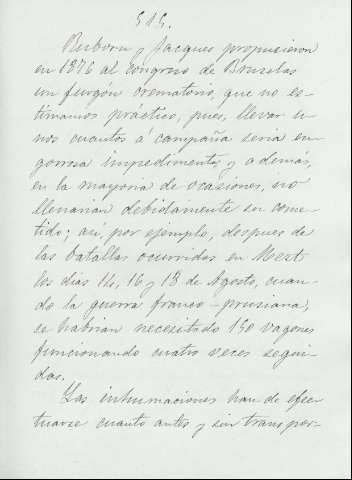 515.
Burborn y Jacques propusieron
en 1876 al congreso de Bruselas
un furgón crematorio, que no es-
timamos práctico, pues, llevar u-
nos cuantos á campaña seria en-
gorrosa impedimenta, y además,
en la mayoria de ocasiones, no
llenarian debidamente su come-
tido; así, por ejemplo, despues de
las batallas ocurridas en Metz
los dias 14, 16 y 18 de Agosto, cuan-
do la guerra franco-prusiana,
se habrian necesitado 150 vagones
funcionando cuatro veces segui-
das.
Las inhumaciones han de efec-
tuarse cuanto antes y sin transpor-